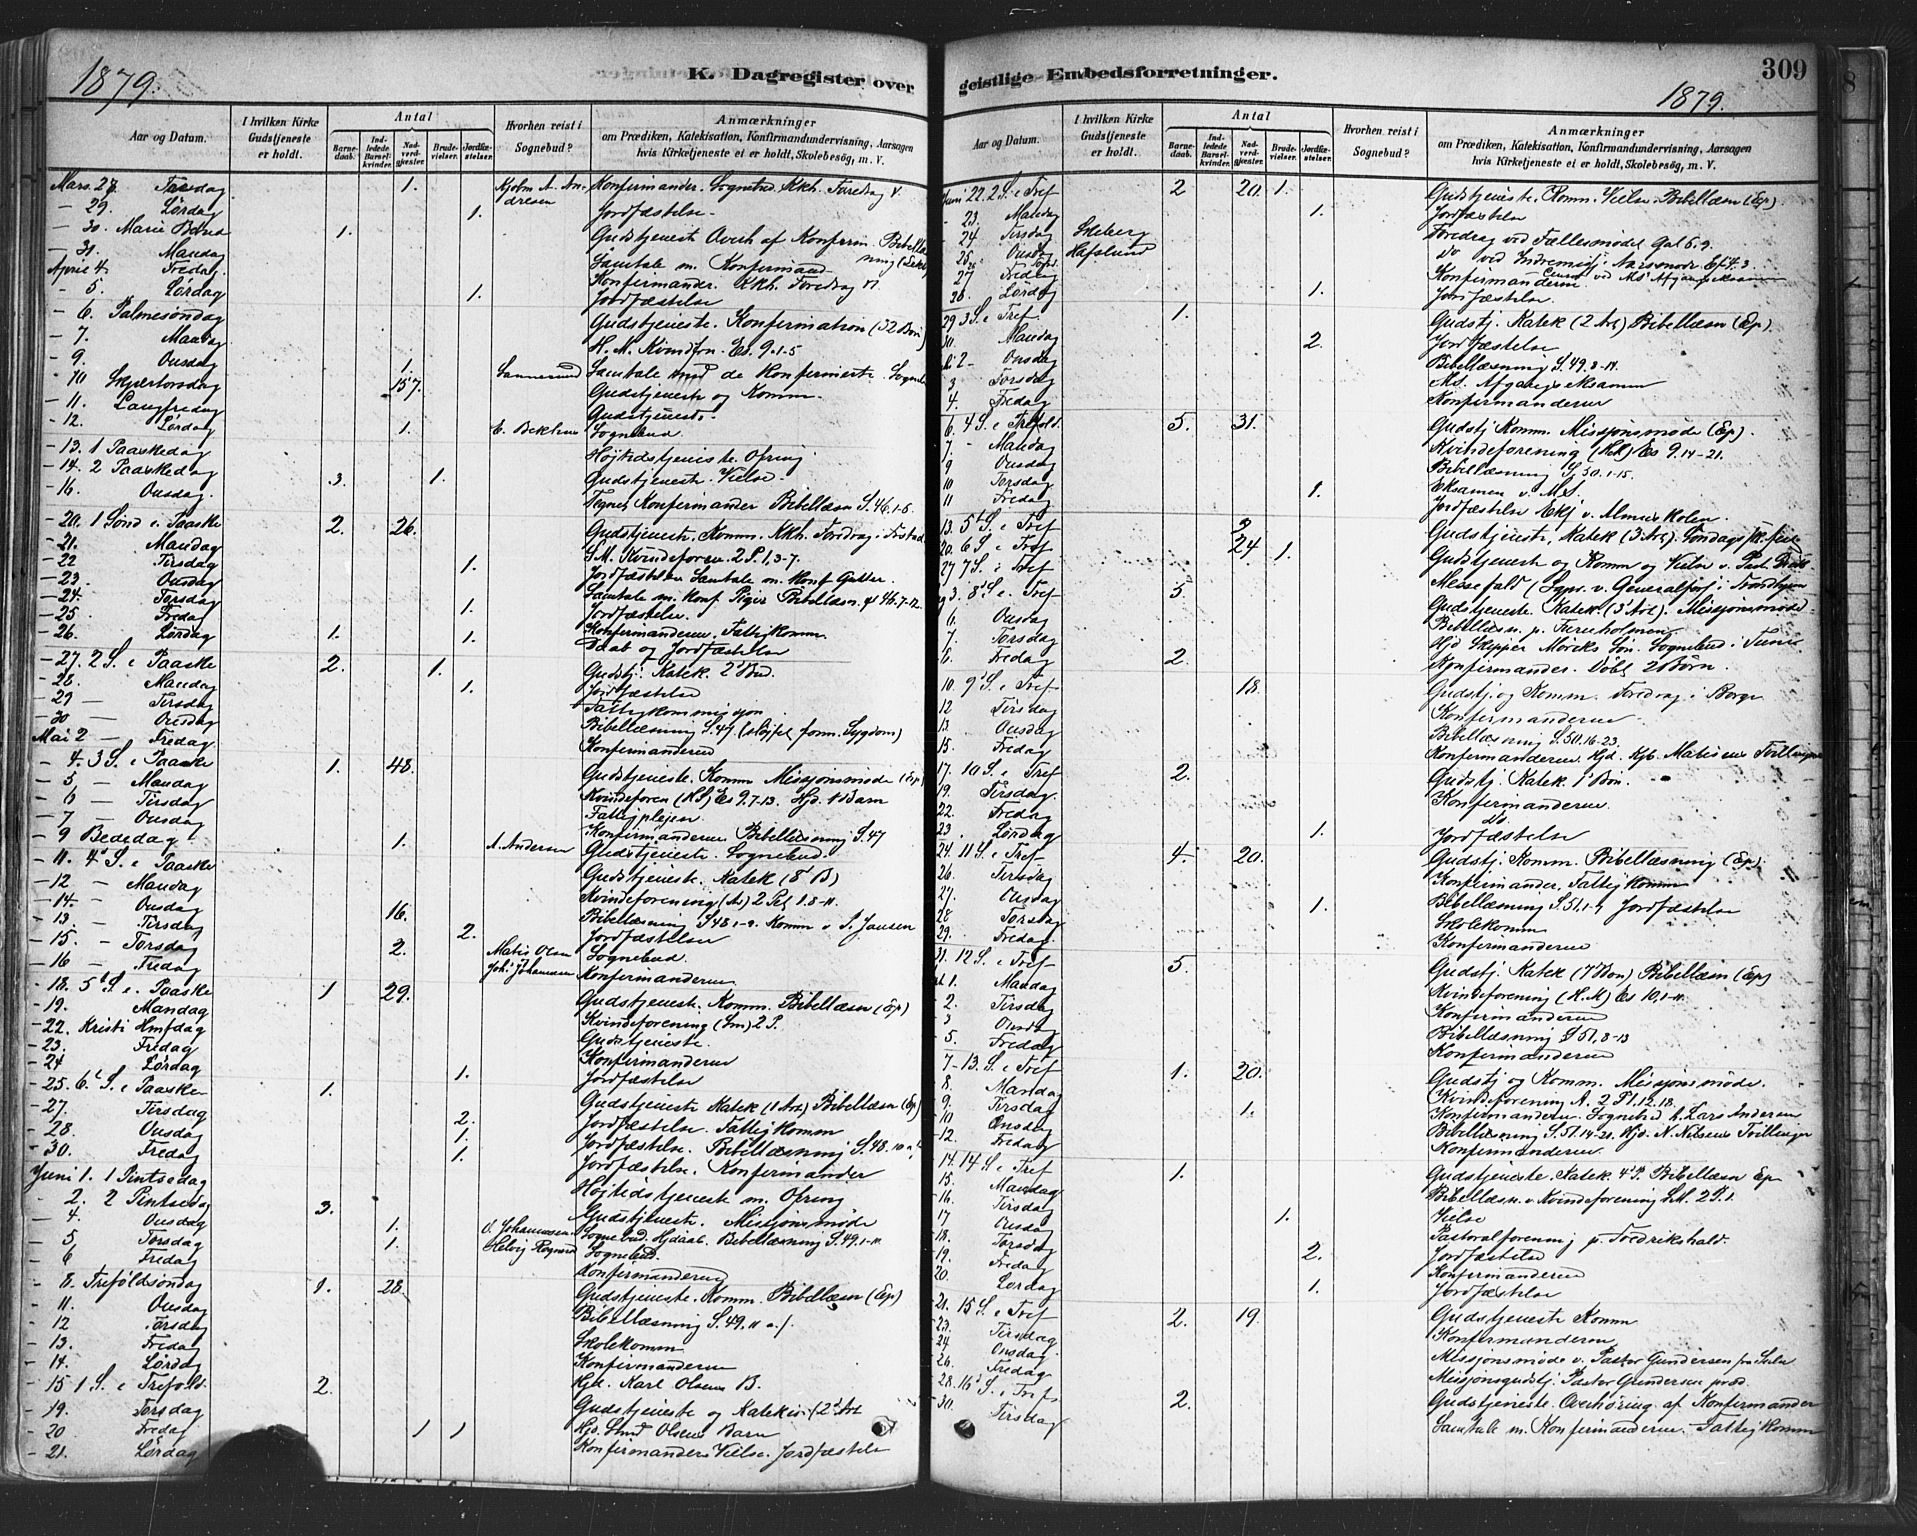 1879.
K. Dagregister over
Aar og Datum.
I hvilken Kirke Gudstjeneste er holdt.
Antal
Barnedaab.
Indledede Barselkvinder.
Nadverdgjester.
Brudevielser.
Jordfæstelser.
Hvorhen reist i Sognebud?
Anmærkninger
om Prædiken, Katekisation, Konfirmandundervisning, Aarsagen
hvis Kirketjeneste ei er holdt, Skolebesøg, m. V.
Mars 27 Torsdag 1. Konfirmander. Foredrag
- 29. Lørdag 1. Jordfæstelse
- 30. Marie Baud 1. Gudstjeneste Overh af Konfirm
- 31. Mandag Samtale m. Konfirmand
April 4 Fredag Konfirmander. Foredrag
- 5. Lørdag 1. Jordfæstelse
- 6. Palmesøndag Gudstjeneste. Konfirmation (32 Børn)
- 7. Mandag Es. 9.1-5
- 9. Onsdag 1. Sannesund Samtale med de Konfirmerte
- 10 Skjærtorsdag 157. Gudstjeneste og Komm.
- 11. Langfredag Gudstjeneste
- 12. Lørdag 1. Sognebud.
- 13. 1 Paaskedag Højtidstjeneste. Ofring
- 14. 2 Paaskedag 3. 1. Gudstjeneste. Vielse
- 16. Onsdag. Konfirmander Bibellæsn S. 46.1-6
- 20. 1 Sønd e. Paaske 2. 26. Gudstjeneste. Komm. Foredrag i
- 21. Mandag Kvindeforen. 2 P. 1,3-7.
- 22 Tirsdag 1. Jordfæstelse Samtale m. Konf Gutter.
- 23. Onsdag Samtale m. Konf Piger Bibellæsn. 46.7-12
- 24. Torsdag 1. Jordfæstelse.
- 25. Fredag Konfirmanderne. Fattigkomm.
- 26. Lørdag 1. 1. Daab og Jordfæstelse
- 27. 2 S. e Paaske 2. 1. Gudstj. Katek. 2' Bud.
- 28. Mandag 1. Jordfæstelse
- 29 - Tirsdag Fattigkommission
- 30 - Onsdag Bibellæsning S. 47 (sløifet form. Sygdom)
Mai 2 - Fredag Konfirmanderne
- 4. 3 S. e Paaske 1. 48. Gudstjeneste. Komm Missjonsmøde (Ep)
- 5 - Mandag Kvindeforen (HS) Es 9.7-13. Hjd. 1 Barn
- 6 - Tirsdag Fattigplejen
- 7 - Onsdag Konfirmanderne Bibellæsning S. 47
- 9 Bededag 1. A. Andersen Gudstjeneste. Sognebud.
- 11. 4' S. e Paaske Gudstjeneste. Katek (8' B)
- 12 - Mandag Kvindeforening 2 Pet 1.8-11.
- 14 - Onsdag 16. Bibellæsning S 48.1-9. Komm v. S. Jansen
- 13. - Tirsdag 2. Jordfæstelser
- 15. - Torsdag 2. Matis Olsen Sognebud.
- 16 - Fredag Joh. Johannesen Konfirmanderne
- 18. 5' S. e. Paaske 1 29. Gudstjeneste. Komm. Bibellæsn (Ep)
- 19. Mandag Kvindeforening (Sm) 2 P.
- 22. Kristi Hmfdag Gudstjeneste.
- 23. Fredag Konfirmanderne
- 24 Lørdag 1. Jordfæstelse
- 25. 6' S. e Paaske 1. Gudstjeneste Katek (1 Art) Bibellæsn (Ep)
- 27. Tirsdag 2. Jordfæstelse. Fattigkomm
- 28. Onsdag 1. Jordfæstelse. Bibellæsning S. 48.10
- 30. Fredag 1. Jordfæstelse. Konfirmander
Juni 1. 1 Pintsedag Højtidstjeneste m. Ofring
- 2. 2 Pintsedag 3. Gudstjeneste. Missjonsmøde
- 4. Onsdag 1. O. Johannessen Sognebud. Hjdaab. Bibellæsning S. 49.1-11
- 5 Torsdag 1. Sognebud.
- 6 Fredag Konfirmanderne
- 8. Trefoldsøndag 1. 28. Gudstjeneste. Komm. Bibellæsn (Ep)
- 11. Onsdag Bibellæsning S. 49.11
- 12 Torsdag Skolekomm
- 13. Fredag Konfirmanderne
- 14. Lørdag Hjd. Karl Olsens B.
- 15 1 S. e Trefold. 2. Gudstjeneste og Katekis. (2' Art
- 19. Torsdag Olsens Barn
- 20 Fredag 1 1 Konfirmander Vielse. Jordfæstelse
- 21. Lørdag
geistlige Embedsforretninger.
309
1879.
Aar og Datum.
I hvilken Kirke Gudstjeneste er holdt.
Antal
Barnedaab.
Indledede Barselkvinder.
Nadverdgjester.
Brudevielser.
Jordfæstelser.
Hvorhen reist i Sognebud?
Anmærkninger
om Prædiken, Katekisation, Konfirmandundervisning, Aarsagen
hvis Kirketjeneste ei er holdt, Skolebesøg, m. V.
Juni 22. 2 S. e Tref 2 20. 1. Gudstjeneste. Komm. Vielse. Bibellæsn (Ep).
- 23. Mandag 1. Jordfæstelse
- 24 Tirsdag Skeberg Foredrag ved Fællesmødet Gal 6.9.
25 Onsdag Hafslund do ved Indremisj. Aarsmøde
27 Fredag Konfirmanderne
28. Lørdag 1. Jordfæstelse.
29 3 S. e Tref 1. Gudstj. Katek (2 Art) Bibellæsn (Ep).
30. Mandag 2. Jordfæstelse
Juli 2 - Onsdag Bibellæsning S. 49.8-14.
3 Torsdag Ms. Afgangseksamen
4. Fredag Konfirmanderne
6. 4 S. e Trefold. 5. 31. Gudstj Komm. Missjonsmøde (Ep).
7. - Mandag Kvindeforening Es 9.14-21.
9 Onsdag Bibellæsning S. 50.1-15.
10 Torsdag Eksamen v. MS.
11 Fredag 1. Jordfæstelse v. Almueskolen.
13. 5' S. e Tref 2. Gudstjeneste, Katek (3 Art).
20. 6 S. e Tref 24 1. Gudstjeneste og Komm og Vielse v.
27 7 S. e Tref Messefald v. Generalforf i Trondhjem
3. 8' S. e. Tref 5. Gudstjeneste Katek (3' Art). Missjonsmøde
6. Onsdag Bibellæsn. p. Fureholmen
7. Torsdag Hjd Skipper Mørchs Søn. Sognebud i Tune
8. Fredag 2. Konfirmander. Døbt 2 Børn.
10. 9' S. e Tref 18. Gudstj. og Komm. Foredrag i Borge
12 Tirsdag Konfirmanderne
13. Onsdag Bibellæsning S. 50.16-23.
15. Fredag Konfirmanderne. Hjd. Matisens Tvillinger
17. 10 S. e Tref 2. Gudstj Katek 1' Bøn.
19. Tirsdag. Konfirmanderne.
22. Fredag do
23 . Lørdag 1. Jordfæstelse
24. 11 S. e Tref 4. 20. Gudstj Komm. Bibellæsning (Ep).
26. Tirsdag Konfirmander. Fattigkomm
27. Onsdag 1. Bibellæsning S. 51.1-7 Jordfæstelse
28 Torsdag Skolekomm
29. Fredag. Konfirmanderne
31. 12 S. e Tref 5. Gudstj. Katek (7' Bøn) Bibellæsn (Ep)
1. Mandag Kvindeforening (H.M) Es 10,1-11.
- 2. Tirsdag Konfirmanderne
- 3 Onsdag Bibellæsning S 51, 8-13
- 5. Fredag Konfirmanderne
7 - 13. S. e Tref 1. 20. Gudstj og Komm. Missjonsmøde.
8. Mandag Kvindeforening A. 2 P 1.12.18.
9. Tirsdag 1. Konfirmanderne. Sognebud h. Lars Andersen
10 Onsdag Bibellæsning S. 51.14-21. Hjd. N. Nilsens Tvillinger
12. Fredag Konfirmanderne.
14. 14 S e Tref 1. Gudstjeneste. Katek 4' P. Bibellæsn Ep
15. Mandag Bibellæsn. v Kvindeforening 2 P. 1.
16. Tirsdag 1. Vielse
17 Onsdag Pastoralforening p. Fredrikshald.
18. Torsdag 2. Jordfæstelse
19. Fredag Konfirmanderne
20. Lørdag 1. Jordfæstelse
21. 15 S. e Tref 2. 19. Gudstjeneste Komm
23. Tirsdag Konfirmanderne
24. Onsdag Missjonsmøde v. Pastor Gundersen
26. Fredag Missjonsgudstj. Pastor Gundersen præd.
28. 16' S. e Tref 2. Gudstjeneste. Overhøring af Konfirmander
30. Tirsdag Samtale m. Konfirmanderne. Fattigkomm